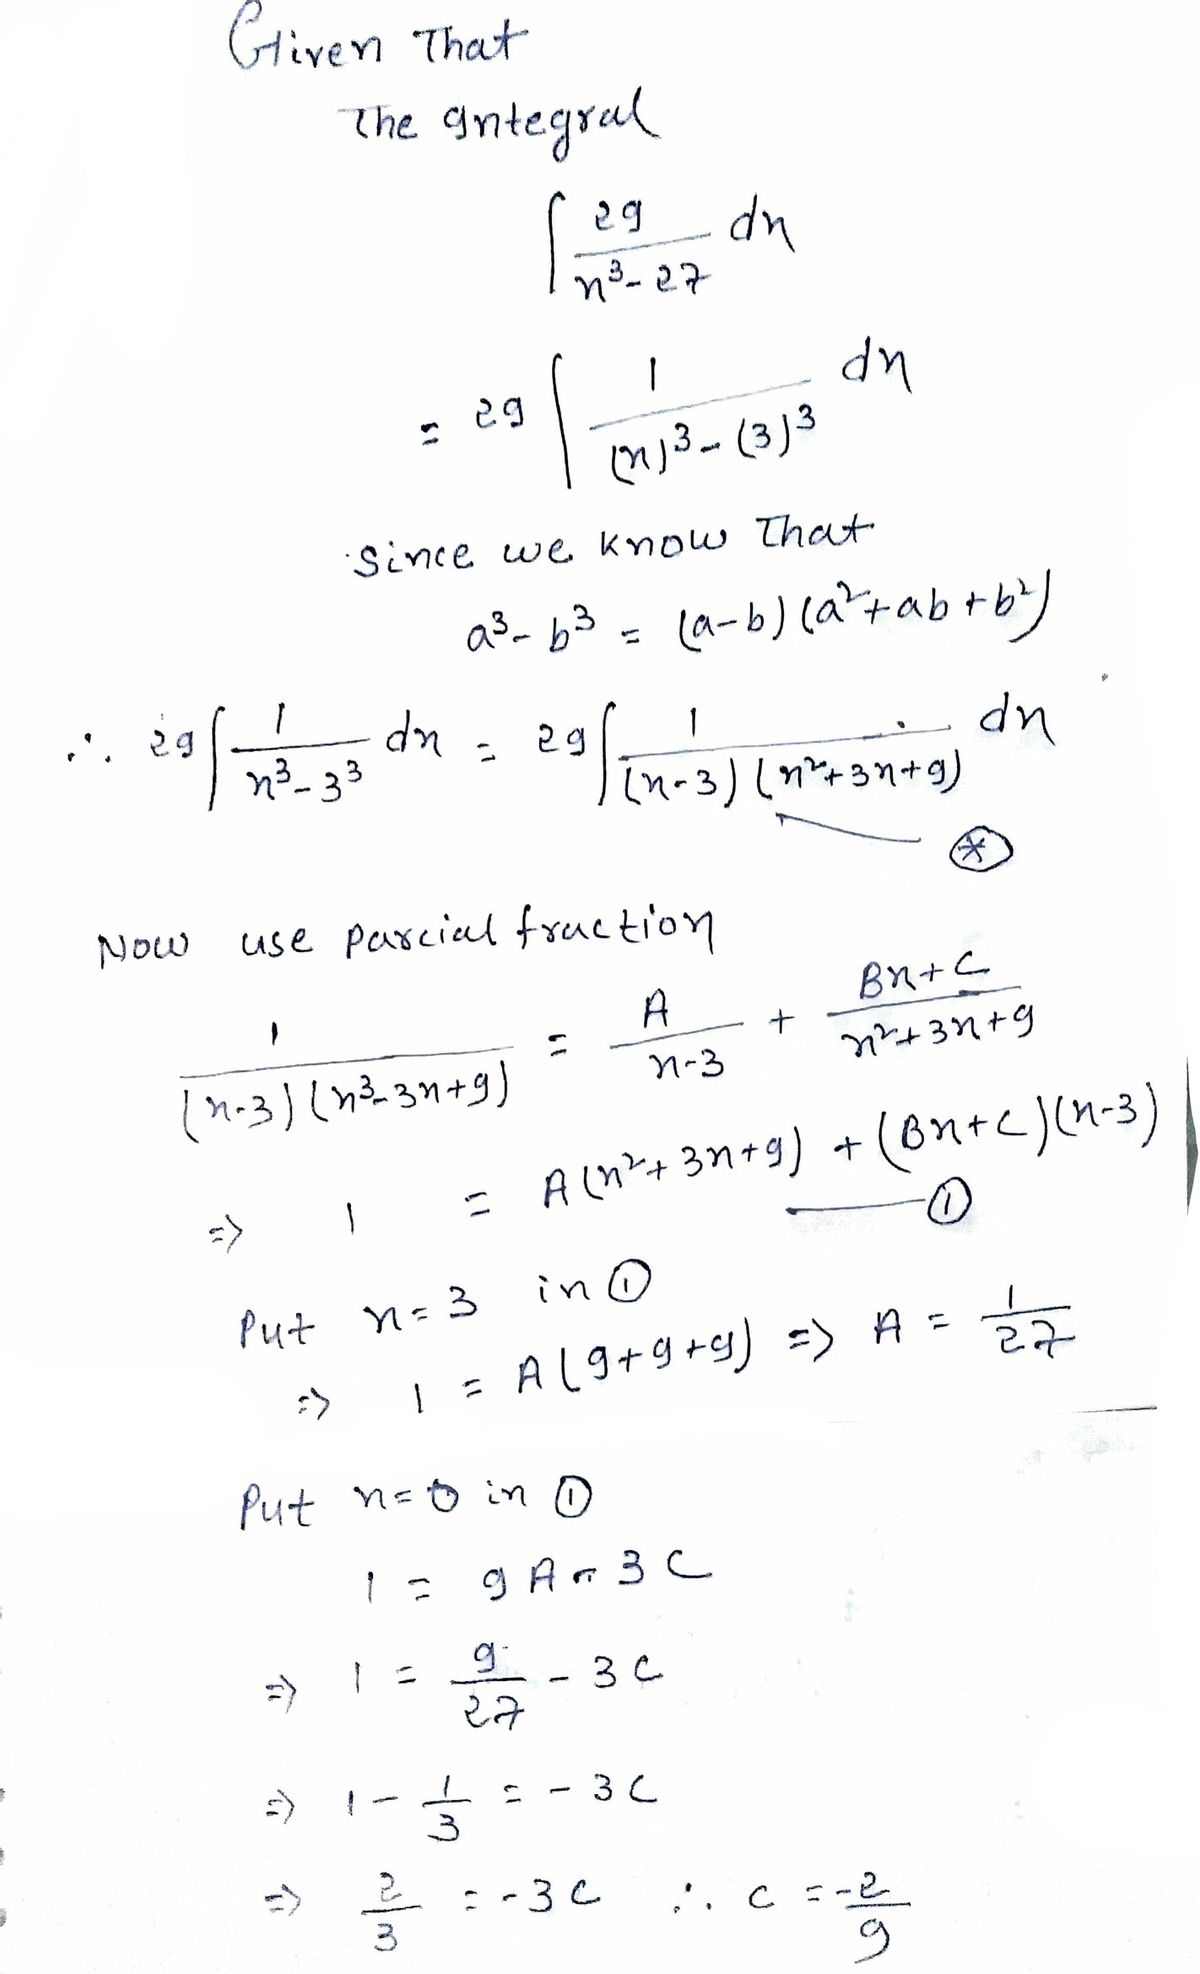 Given That
The Integral
∫ 29/(x³-27) dx
= 29 ∫ 1/((x)³-(3)³) dx
Since we know That
a³-b³ = (a-b)(a²+ab+b²)
∴ 29∫ 1/(x³-3³) dx = 29∫ 1/((x-3)(x²+3x+9)) dx
⊛
Now use parcial fraction
1/((x-3)(x³-3x+9)) = A/(x-3) + (Bx+C)/(x²+3x+9)
=> 1 = A(x²+3x+9) + (Bx+C)(x-3)
①
Put x=3 in ①
=> 1 = A(9+9+9) => A = 1/27
Put x=0 in ①
1 = 9A - 3C
=> 1 = 9/27 - 3C
=> 1 - 1/3 = -3C
=> 2/3 = -3C ∴ C = -2/9